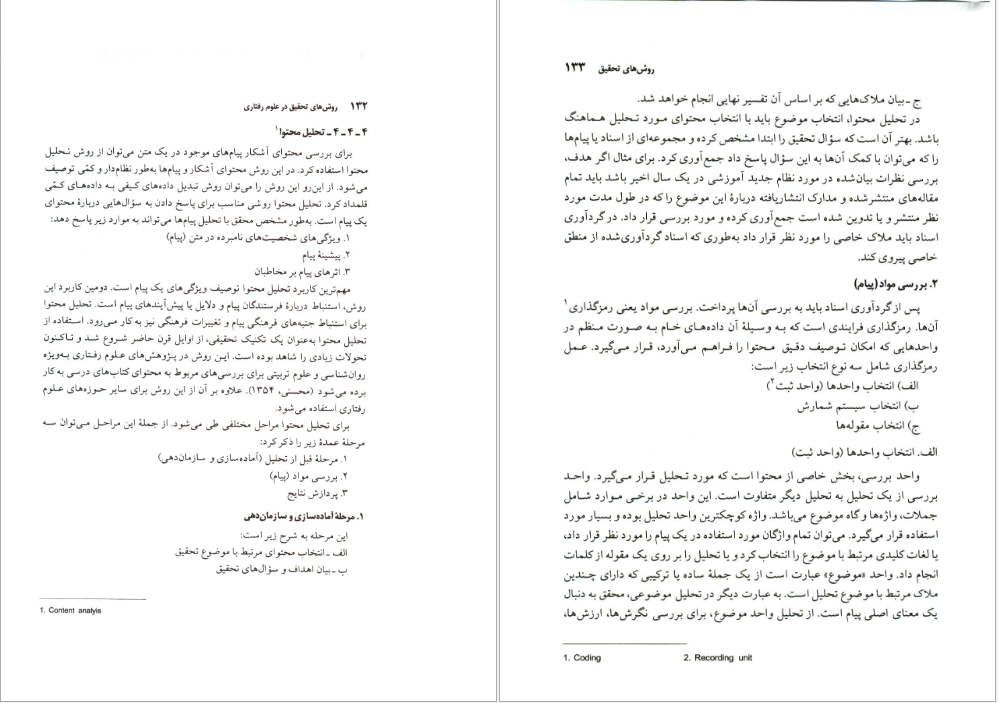 ۱۳۲ روش‌های تحقیق در علوم رفتاری
۴ـ۴ـ۴ـ تحلیل محتوا۱
برای بررسی محتوای آشکار پیام‌های موجود در یک متن می‌توان از روش تحلیل
محتوا استفاده کرد. در این روش محتوای آشکار و پیام‌ها به‌طور نظام‌دار و کمّی توصیف
می‌شود. از این‌رو این روش را می‌توان روش تبدیل داده‌های کیفی به داده‌های کمّی
قلمداد کرد. تحلیل محتوا روشی مناسب برای پاسخ دادن به سؤال‌هایی دربارهٔ محتوای
یک پیام است. به‌طور مشخص محقق با تحلیل پیام‌ها می‌تواند به موارد زیر پاسخ دهد:
۱. ویژگی‌های شخصیت‌های نامبرده در متن (پیام)
۲. پیشینهٔ پیام
۳. اثرهای پیام بر مخاطبان
مهم‌ترین کاربرد تحلیل محتوا توصیف ویژگی‌های یک پیام است. دومین کاربرد این
روش، استنباط دربارهٔ فرستندگان پیام و دلایل یا پیش‌آیندهای پیام است. تحلیل محتوا
برای استنباط جنبه‌های فرهنگی پیام و تغییرات فرهنگی نیز به کار می‌رود. استفاده از
تحلیل محتوا به‌عنوان یک تکنیک تحقیقی، از اوایل قرن حاضر شروع شد و تاکنون
تحولات زیادی را شاهد بوده است. این روش در پژوهش‌های علوم رفتاری به‌ویژه
روان‌شناسی و علوم تربیتی برای بررسی‌های مربوط به محتوای کتاب‌های درسی به کار
برده می‌شود (محسنی، ۱۳۵۴). علاوه بر آن از این روش برای سایر حوزه‌های علوم
رفتاری استفاده می‌شود.
برای تحلیل محتوا مراحل مختلفی طی می‌شود. از جملهٔ این مراحل می‌توان سه
مرحلهٔ عمدهٔ زیر را ذکر کرد:
۱. مرحلهٔ قبل از تحلیل (آماده‌سازی و سازمان‌دهی)
۲. بررسی مواد (پیام)
۳. پردازش نتایج
۱. مرحلهٔ آماده‌سازی و سازمان‌دهی
این مرحله به شرح زیر است:
الف ـ انتخاب محتوای مرتبط با موضوع تحقیق
ب ـ بیان اهداف و سؤال‌های تحقیق
1. Content analyis
روش‌های تحقیق ۱۳۳
ج ـ بیان ملاک‌هایی که بر اساس آن تفسیر نهایی انجام خواهد شد.
در تحلیل محتوا، انتخاب موضوع باید با انتخاب محتوای مورد تحلیل هماهنگ
باشد. بهتر آن است که سؤال تحقیق را ابتدا مشخص کرده و مجموعه‌ای از اسناد یا پیام‌ها
را که می‌توان با کمک آن‌ها به این سؤال پاسخ داد جمع‌آوری کرد. برای مثال اگر هدف،
بررسی نظرات بیان‌شده در مورد نظام جدید آموزشی در یک سال اخیر باشد باید تمام
مقاله‌های منتشرشده و مدارک انتشاریافته دربارهٔ این موضوع را که در طول مدت مورد
نظر منتشر و یا تدوین شده است جمع‌آوری کرده و مورد بررسی قرار داد. در گردآوری
اسناد باید ملاک خاصی را مورد نظر قرار داد به‌طوری که اسناد گردآوری‌شده از منطق
خاصی پیروی کند.
۲. بررسی مواد (پیام)
پس از گردآوری اسناد باید به بررسی آن‌ها پرداخت. بررسی مواد یعنی رمزگذاری۱
آن‌ها. رمزگذاری فرایندی است که به وسیلهٔ آن داده‌های خام به صورت منظم در
واحدهایی که امکان توصیف دقیق محتوا را فراهم می‌آورد، قرار می‌گیرد. عمل
رمزگذاری شامل سه نوع انتخاب زیر است:
الف) انتخاب واحدها (واحد ثبت۲)
ب) انتخاب سیستم شمارش
ج) انتخاب مقوله‌ها
الف. انتخاب واحدها (واحد ثبت)
واحد بررسی، بخش خاصی از محتوا است که مورد تحلیل قرار می‌گیرد. واحد
بررسی از یک تحلیل به تحلیل دیگر متفاوت است. این واحد در برخی موارد شامل
جملات، واژه‌ها و گاه موضوع می‌باشد. واژه کوچکترین واحد تحلیل بوده و بسیار مورد
استفاده قرار می‌گیرد. می‌توان تمام واژگان مورد استفاده در یک پیام را مورد نظر قرار داد،
یا لغات کلیدی مرتبط با موضوع را انتخاب کرد و یا تحلیل را بر روی یک مقوله از کلمات
انجام داد. واحد «موضوع» عبارت است از یک جملهٔ ساده یا ترکیبی که دارای چندین
ملاک مرتبط با موضوع تحلیل است. به عبارت دیگر در تحلیل موضوعی، محقق به دنبال
یک معنای اصلی پیام است. از تحلیل واحد موضوع، برای بررسی نگرش‌ها، ارزش‌ها،
1. Coding 2. Recording unit